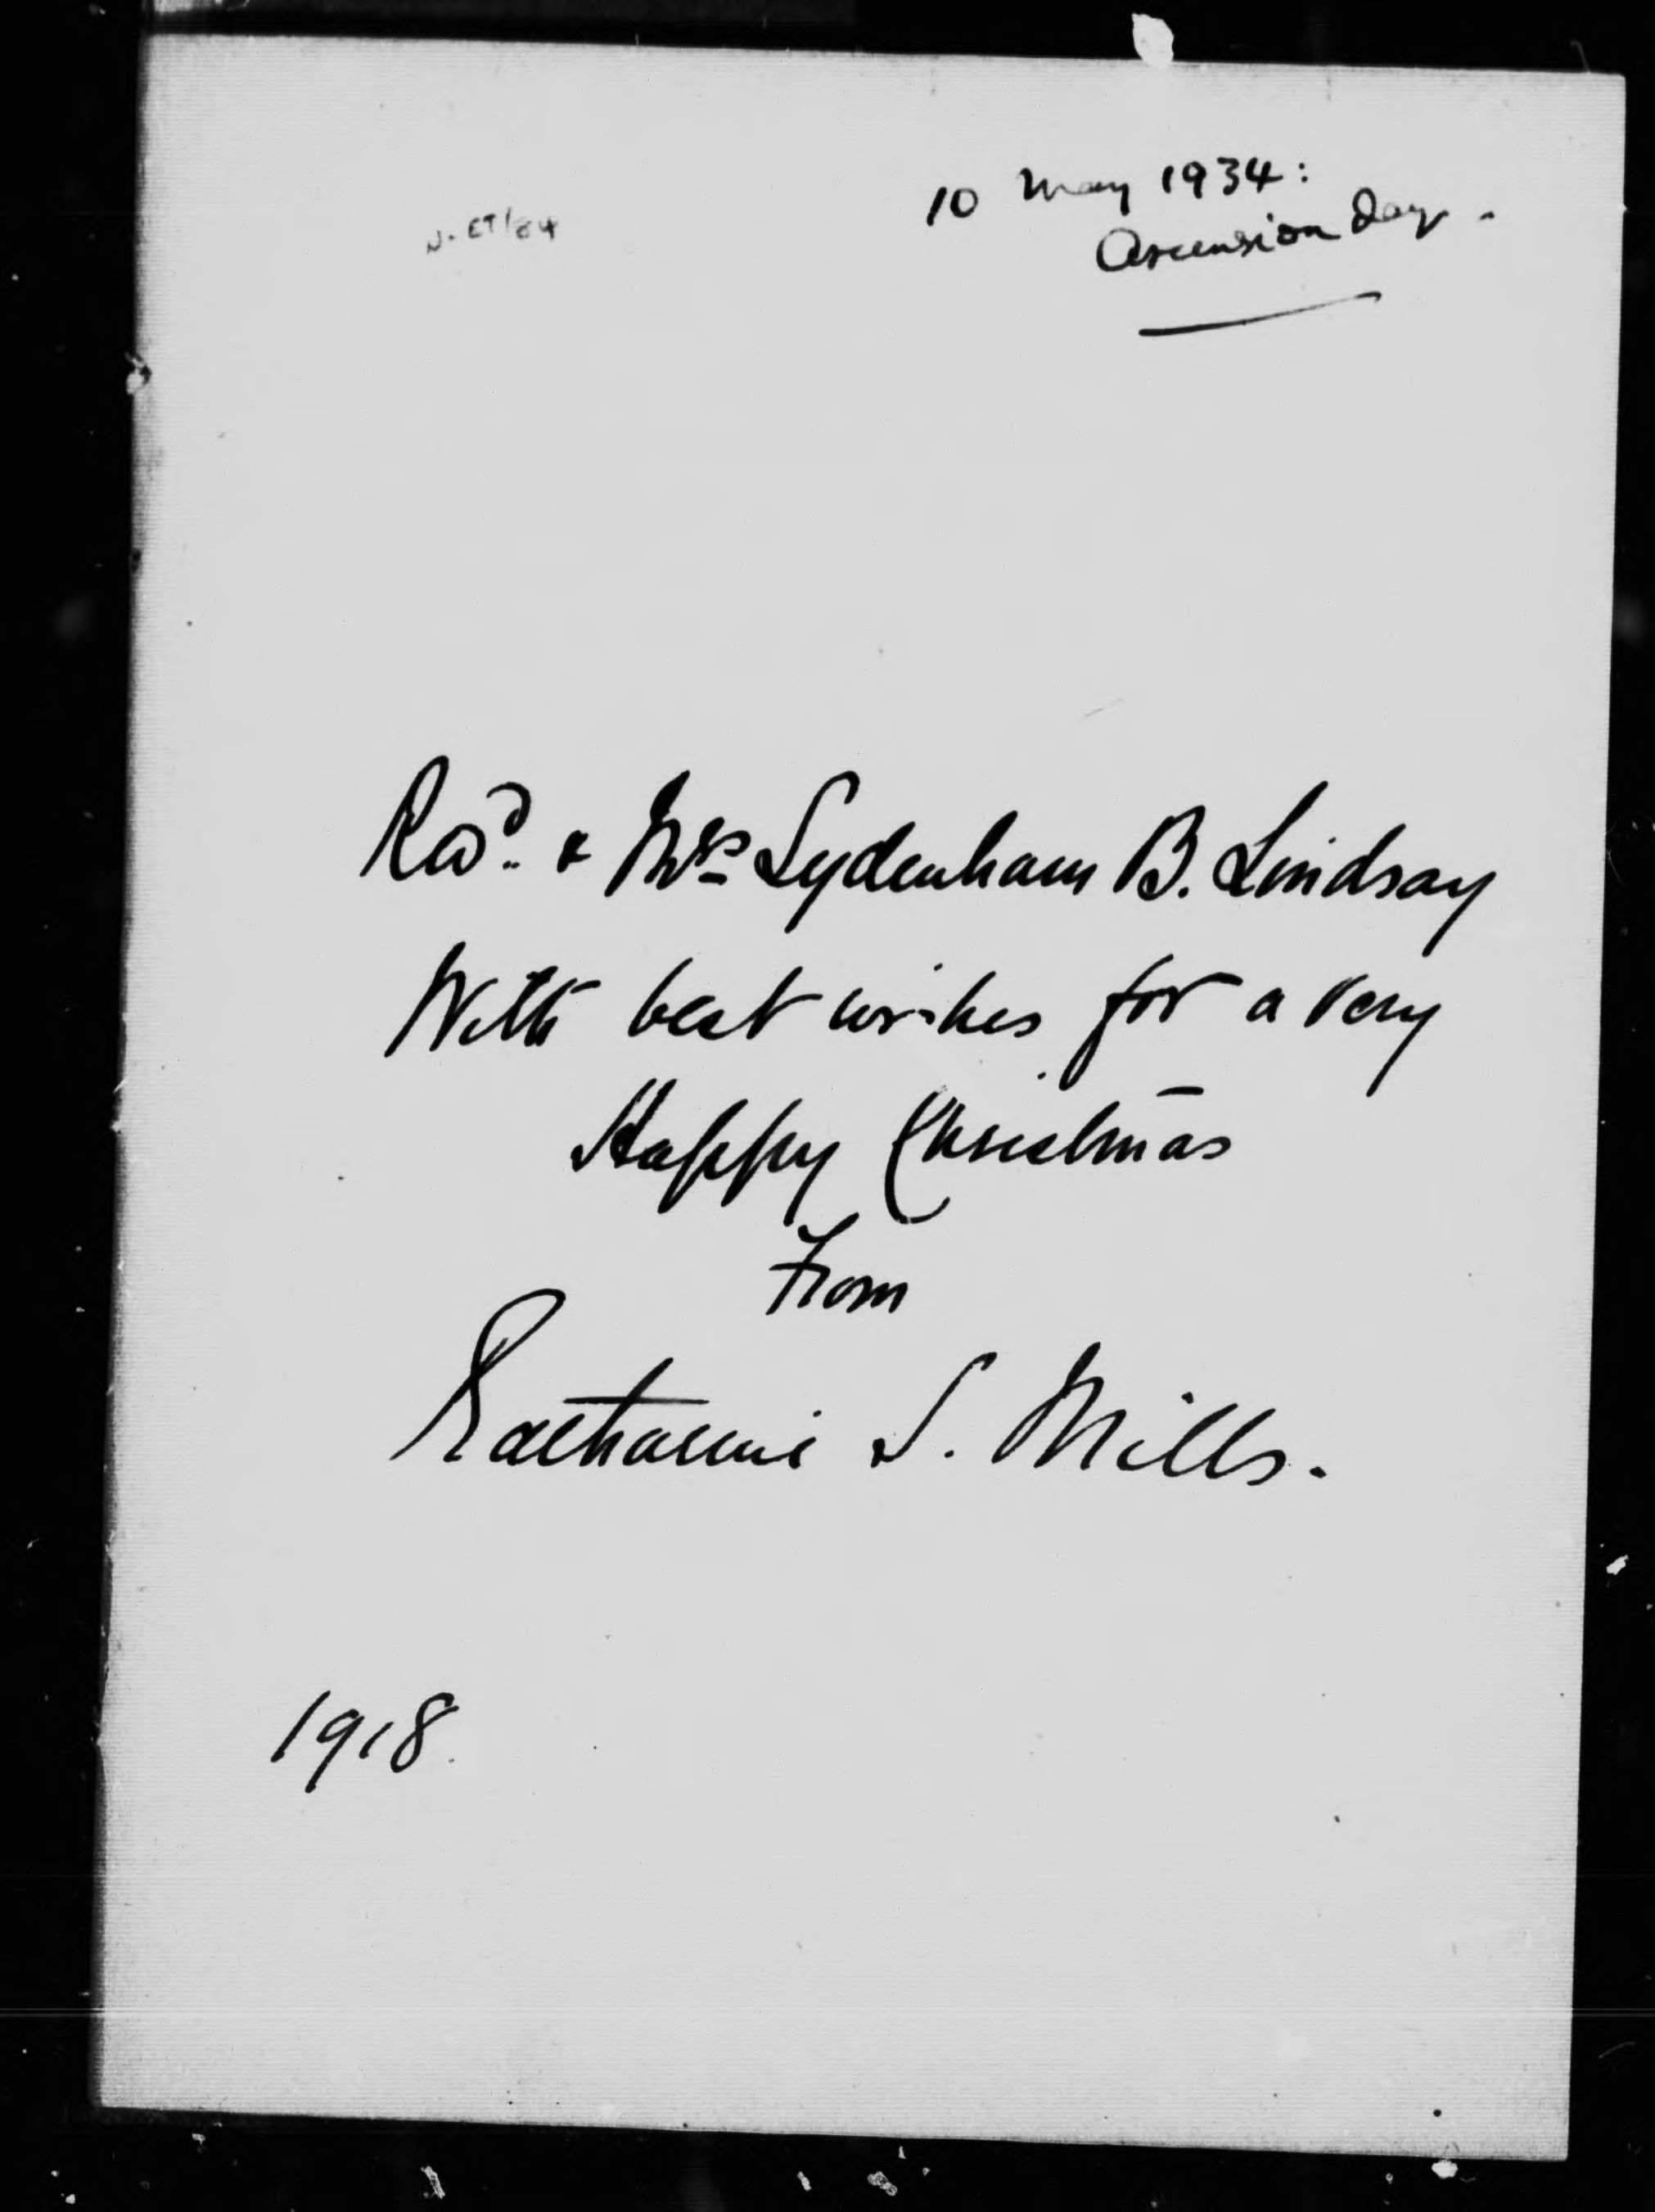 10 May 1934:
Ascension Day.
Revd. & Mrs Sydenham B. Lindsay
With best wishes for a very
Happy Christmas
From
Katharine S. Mills.
1918.